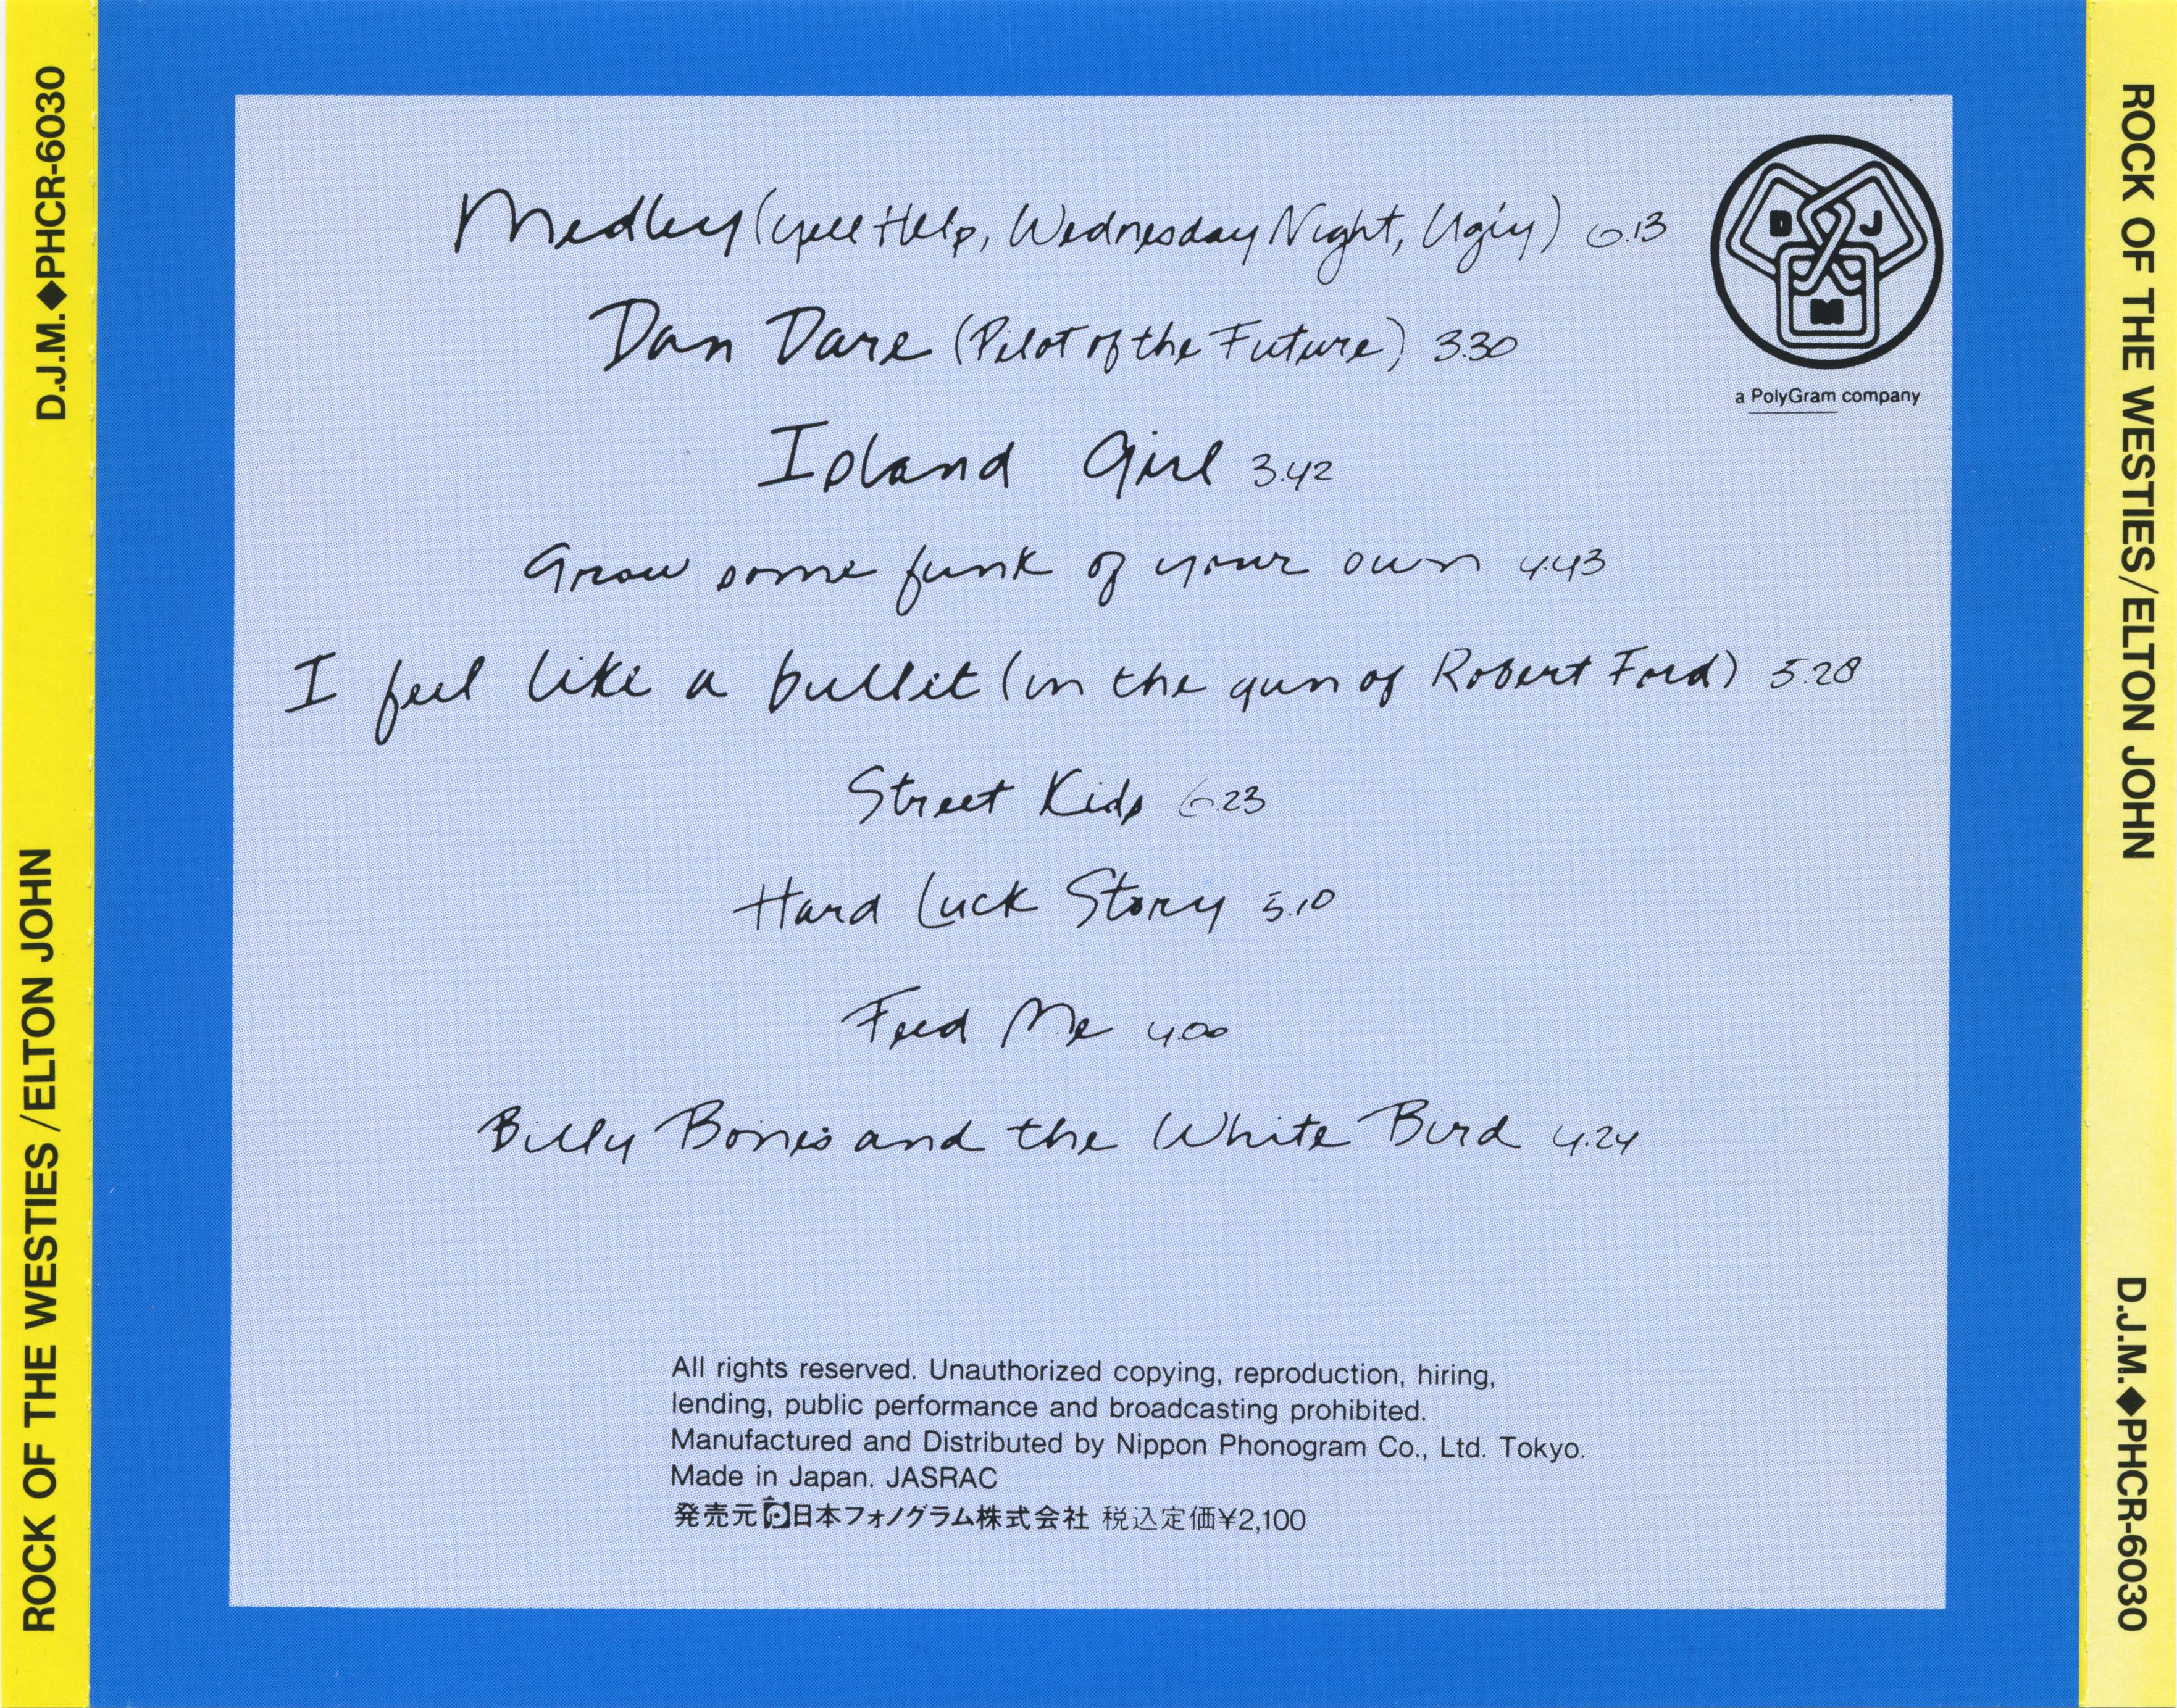 D.J.M.◆PHCR-6030
ROCK OF THE WESTIES/ELTON JOHN
Medley (Yell Help, Wednesday Night, Ugly) 6.13
Dan Dare (Pilot of the Future) 3.30
Island Girl 3.42
Grow some funk of your own 4.43
I feel like a bullet (in the gun of Robert Ford) 5.28
Street Kids 6.23
Hard Luck Story 5.10
Feed Me 4.00
Billy Bones and the White Bird 4.24
D J
M
a PolyGram company
All rights reserved. Unauthorized copying, reproduction, hiring,
lending, public performance and broadcasting prohibited.
Manufactured and Distributed by Nippon Phonogram Co., Ltd. Tokyo.
Made in Japan. JASRAC
発売元 日本フォノグラム株式会社 税込定価¥2,100
ROCK OF THE WESTIES/ELTON JOHN
D.J.M.◆PHCR-6030